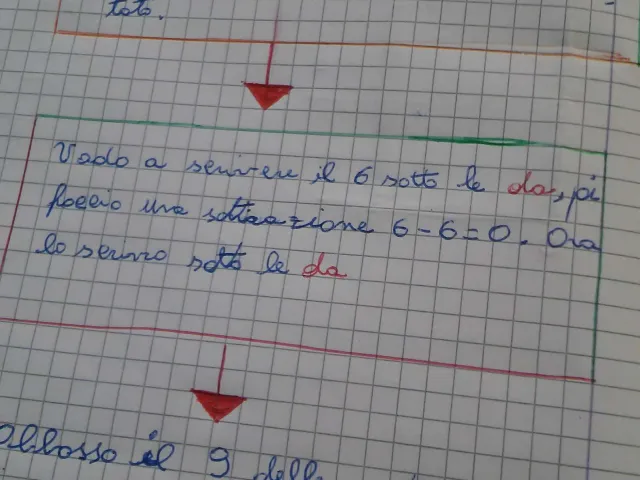 toto.
Vado a scrivere il 6 sotto le da, pi
faccio una sottrazione 6-6=0. Ora
lo scrivo sotto le da
Abbasso il 9 dell